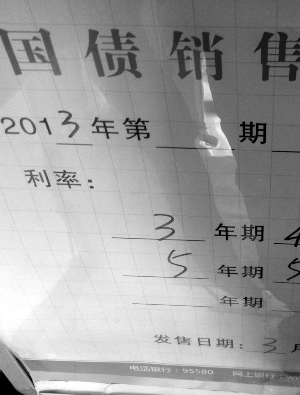 国债销售
2013年第 期
利率：
3 年期 4
5 年期 5
年期
发售日期：3月
电话银行：95580 网上银行：